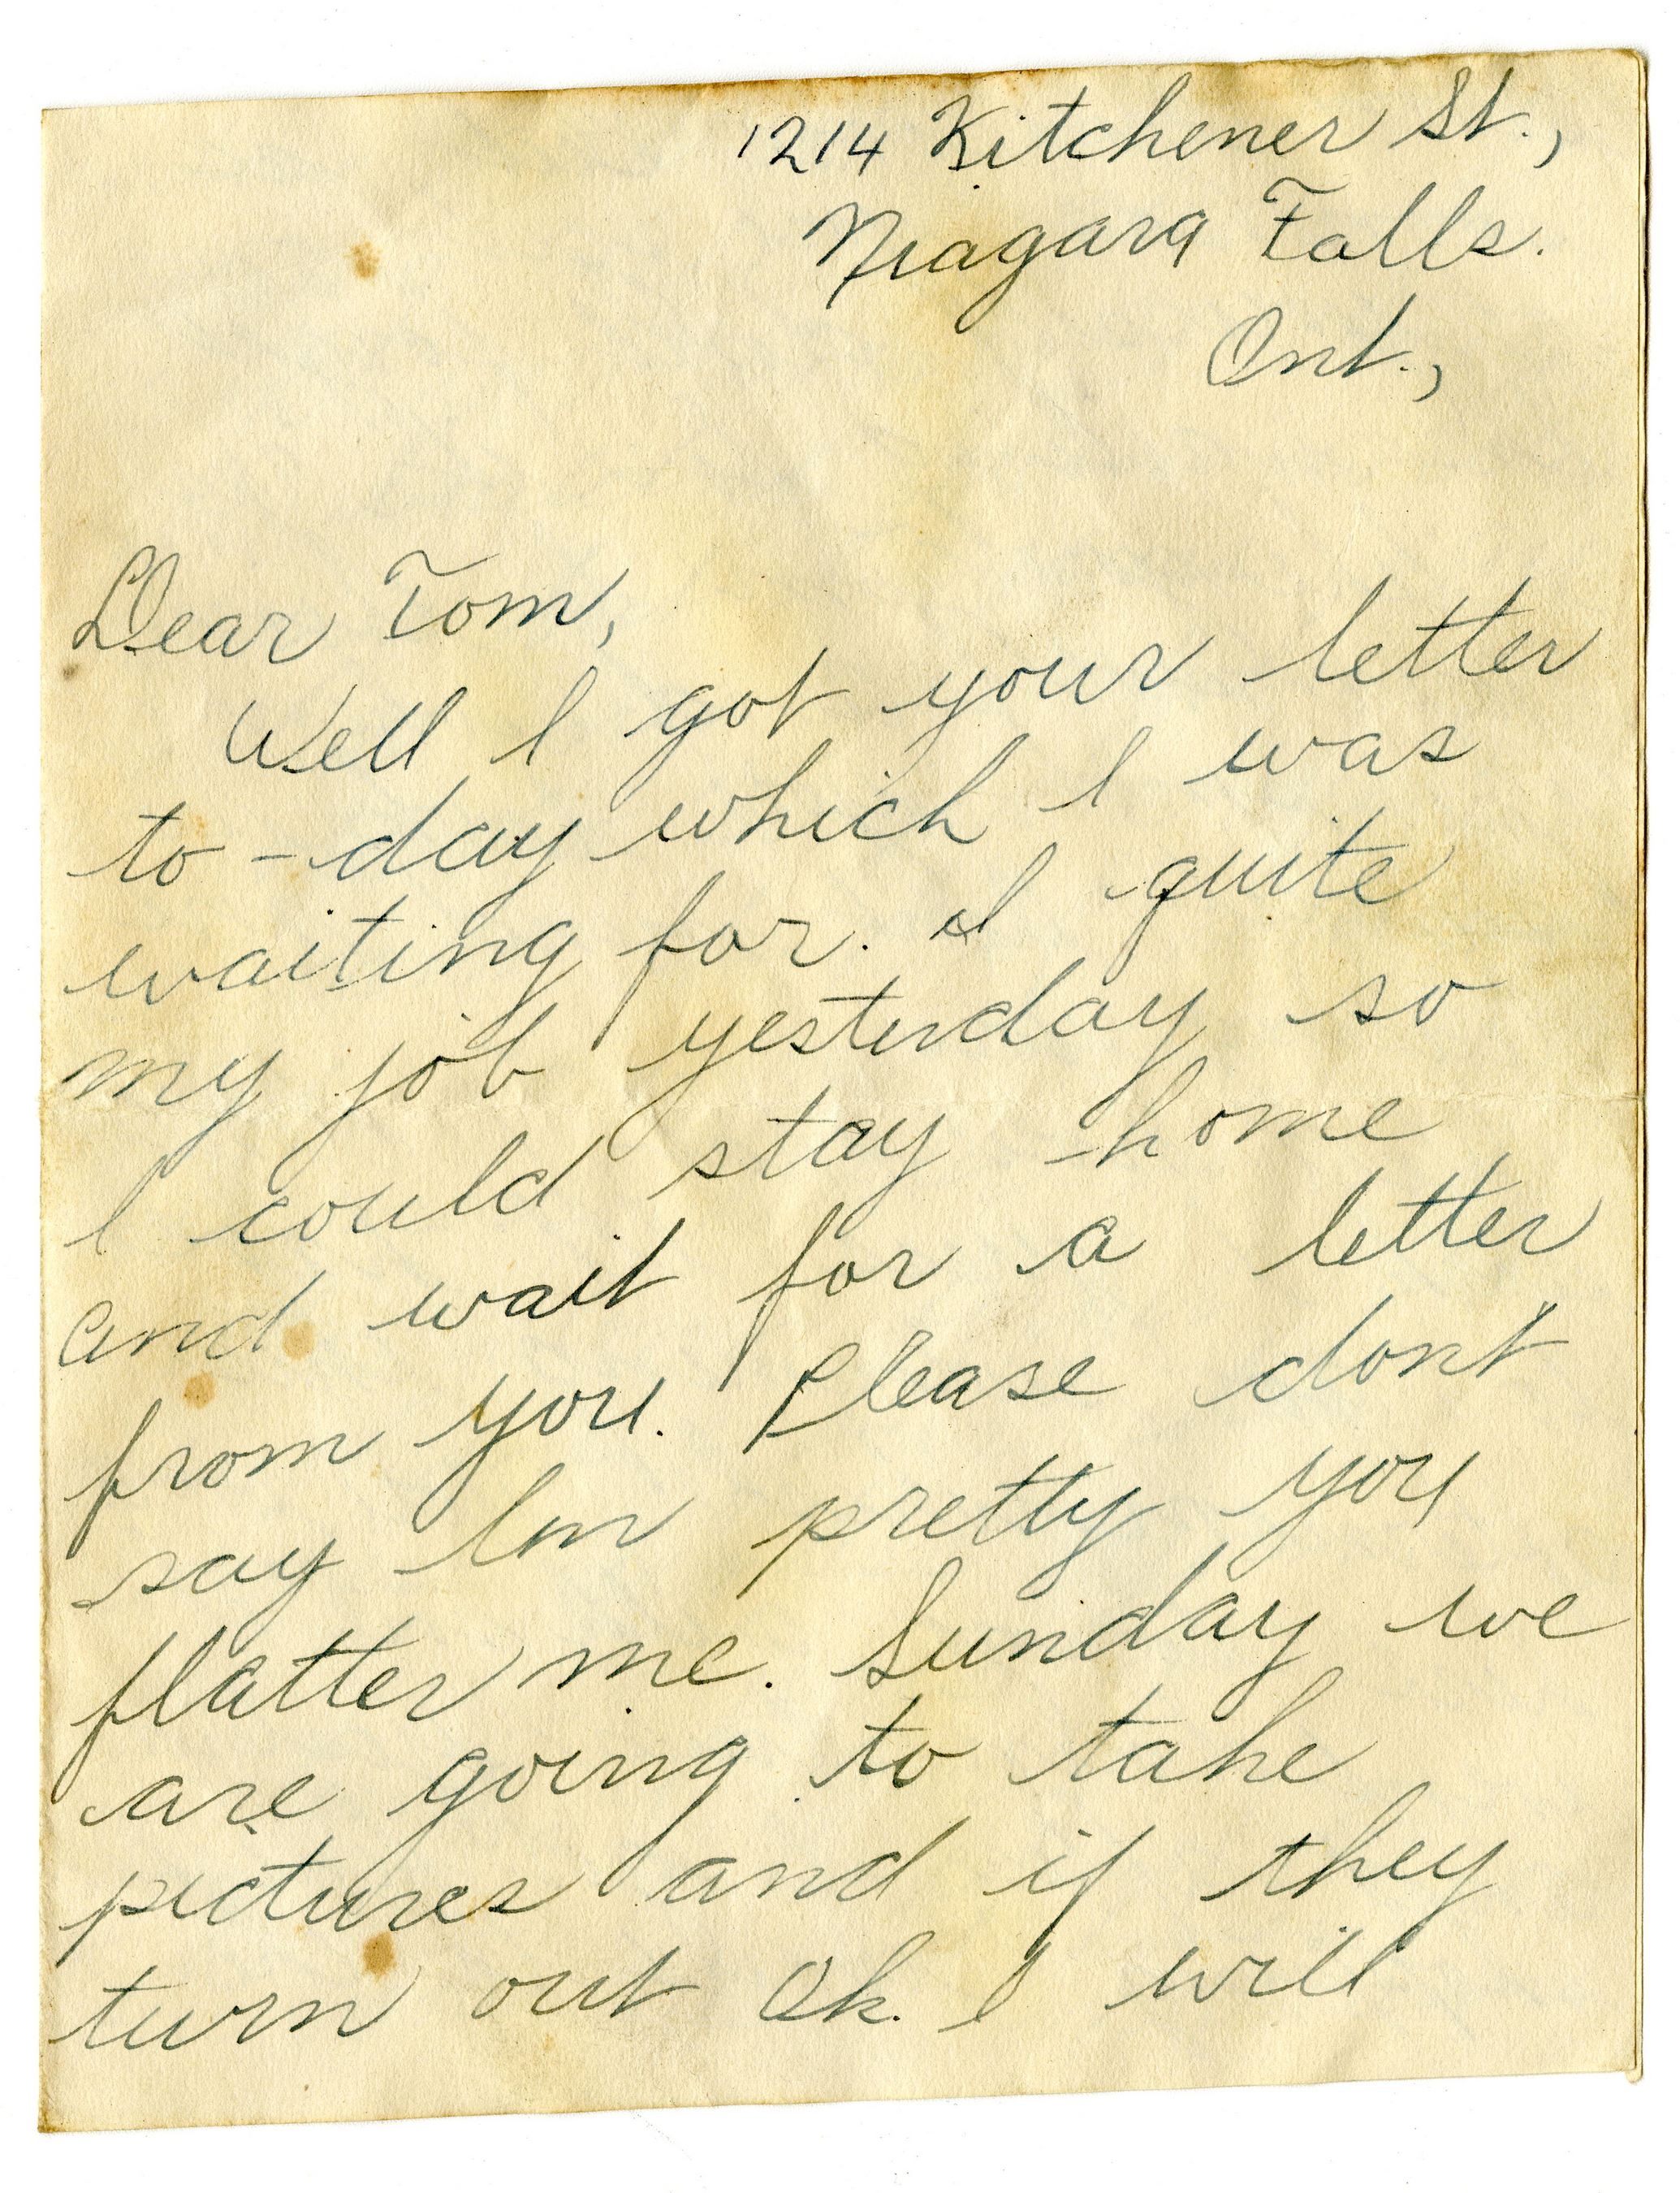 1214 Kitchener St.,
Niagara Falls.
Ont.,
Dear Tom,
Well I got your letter
to-day which I was
waiting for. I quite
my job yesterday so
I could stay home
and wait for a letter
from you. Please dont
say Im pretty you
flatter me. Sunday we
are going to take
pictures and if they
turn out Ok. I will